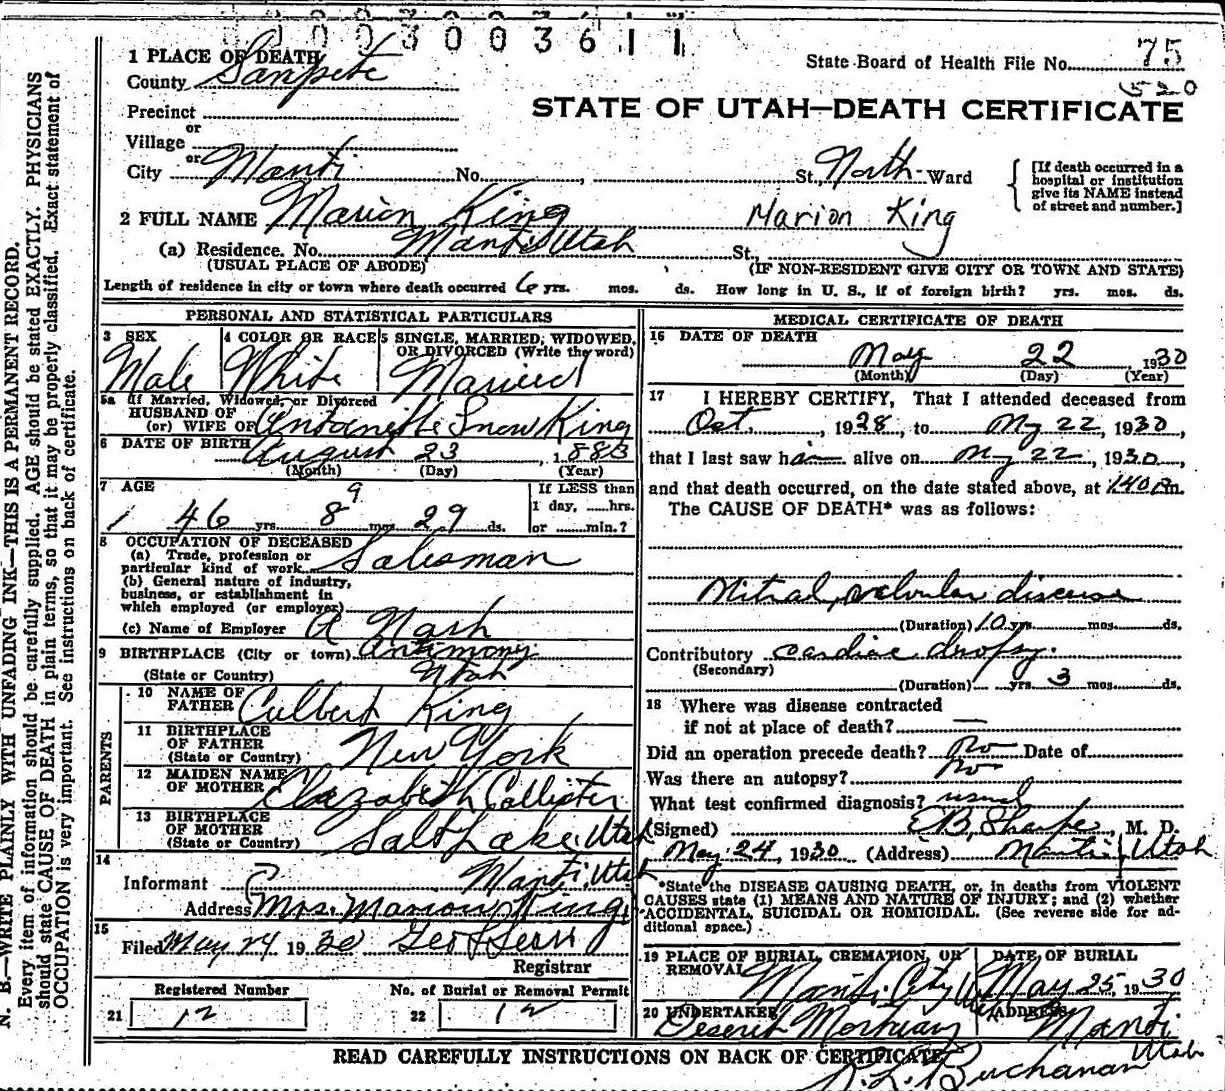 003003611
1 PLACE OF DEATH
County Sanpete
State Board of Health File No. 75
520
Precinct
or
Village
or
City Manti No. , St., North Ward
STATE OF UTAH—DEATH CERTIFICATE
[If death occurred in a hospital or institution give its NAME instead of street and number.]
2 FULL NAME Marion King Marion King
(a) Residence. No. Manti Utah St.,
(USUAL PLACE OF ABODE) (IF NON-RESIDENT GIVE CITY OR TOWN AND STATE)
Length of residence in city or town where death occurred 6 yrs. mos. ds. How long in U. S., if of foreign birth? yrs. mos. ds.
PERSONAL AND STATISTICAL PARTICULARS
3 SEX
Male
4 COLOR OR RACE
White
5 SINGLE, MARRIED, WIDOWED, OR DIVORCED (Write the word)
Married
5a If Married, Widowed, or Divorced
HUSBAND OF
(or) WIFE OF Antoinette Snow King
6 DATE OF BIRTH August 23, 1883
(Month) (Day) (Year)
7 AGE
9
46 yrs. 8 mos. 29 ds.
If LESS than
1 day, ......hrs.
or ......min.?
8 OCCUPATION OF DECEASED
(a) Trade, profession or
particular kind of work Salesman
(b) General nature of industry,
business, or establishment in
which employed (or employer)
(c) Name of Employer A Nash
9 BIRTHPLACE (City or town) Antimony
(State or Country) Utah
PARENTS
10 NAME OF
FATHER Culbert King
11 BIRTHPLACE
OF FATHER
(State or Country) New York
12 MAIDEN NAME
OF MOTHER Elazabeth Callister
13 BIRTHPLACE
OF MOTHER
(State or Country) Salt Lake, Utah
14
Informant Manti, Utah
Address Mrs. Marion King
15
Filed May 24 1930
Registrar
Registered Number
21 12
No. of Burial or Removal Permit
22 12
MEDICAL CERTIFICATE OF DEATH
16 DATE OF DEATH
May 22 1930
(Month) (Day) (Year)
17 I HEREBY CERTIFY, That I attended deceased from
Oct. , 1928, to May 22, 1930,
that I last saw him alive on May 22, 1930,
and that death occurred, on the date stated above, at 1.40 m.
The CAUSE OF DEATH* was as follows:
Mitral valvular disease
(Duration) 10 yrs. mos. ds.
Contributory cardiac dropsy.
(Secondary)
(Duration) yrs. 3 mos. ds.
18 Where was disease contracted
if not at place of death? —
Did an operation precede death? No Date of
Was there an autopsy? No
What test confirmed diagnosis? usual
(Signed) , M. D.
May 24, 1930 (Address) Manti, Utah
*State the DISEASE CAUSING DEATH, or, in deaths from VIOLENT
CAUSES state (1) MEANS AND NATURE OF INJURY; and (2) whether
ACCIDENTAL, SUICIDAL OR HOMICIDAL. (See reverse side for ad-
ditional space.)
19 PLACE OF BURIAL, CREMATION, OR
REMOVAL Manti City
DATE OF BURIAL
May 25, 1930
20 UNDERTAKER
Deseret Mortuary
ADDRESS
Manti
Utah
READ CAREFULLY INSTRUCTIONS ON BACK OF CERTIFICATE
R. L. Buchanan
N. B.—WRITE PLAINLY WITH UNFADING INK—THIS IS A PERMANENT RECORD.
Every item of information should be carefully supplied. AGE should be stated EXACTLY. PHYSICIANS
should state CAUSE OF DEATH in plain terms, so that it may be properly classified. Exact statement of
OCCUPATION is very important. See instructions on back of certificate.